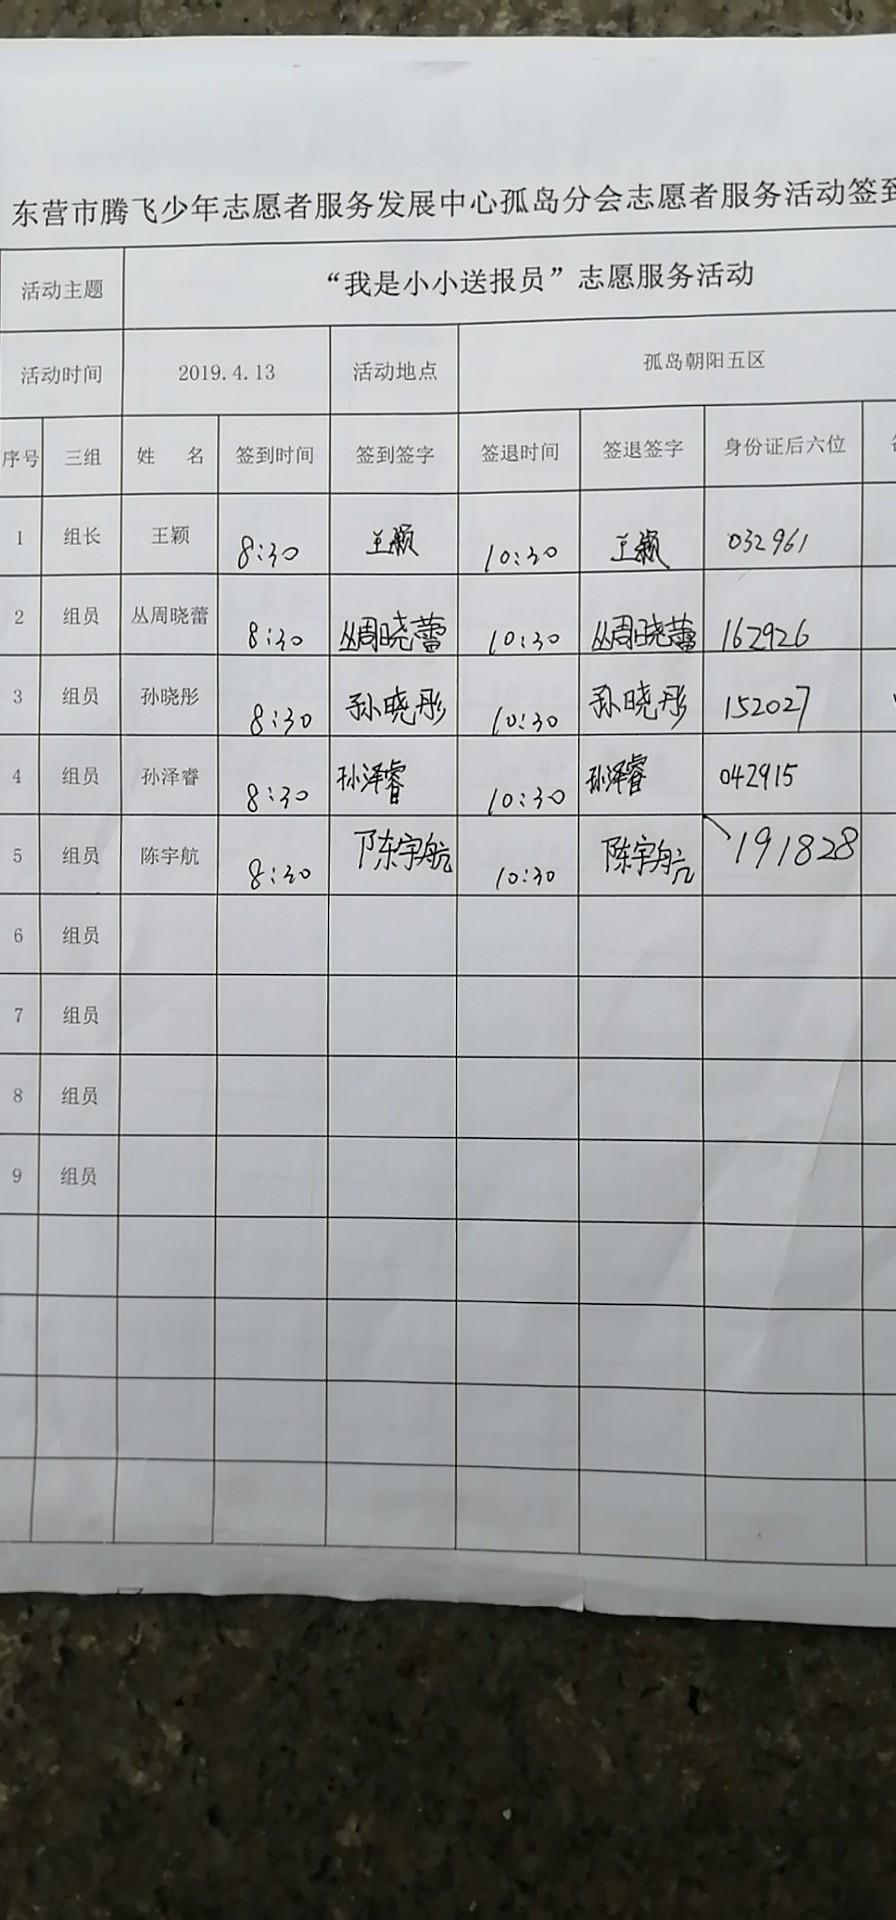 东营市腾飞少年志愿者服务发展中心孤岛分会志愿者服务活动签到
活动主题 “我是小小送报员”志愿服务活动
活动时间 2019.4.13 活动地点 孤岛朝阳五区
序号 三组 姓 名 签到时间 签到签字 签退时间 签退签字 身份证后六位
1 组长 王颖 8:30 王颖 10:30 王颖 032961
2 组员 丛周晓蕾 8:30 丛周晓蕾 10:30 丛周晓蕾 162926
3 组员 孙晓彤 8:30 孙晓彤 10:30 孙晓彤 152027
4 组员 孙泽睿 8:30 孙泽睿 10:30 孙泽睿 042915
5 组员 陈宇航 8:30 陈宇航 10:30 陈宇航 191828
6 组员
7 组员
8 组员
9 组员